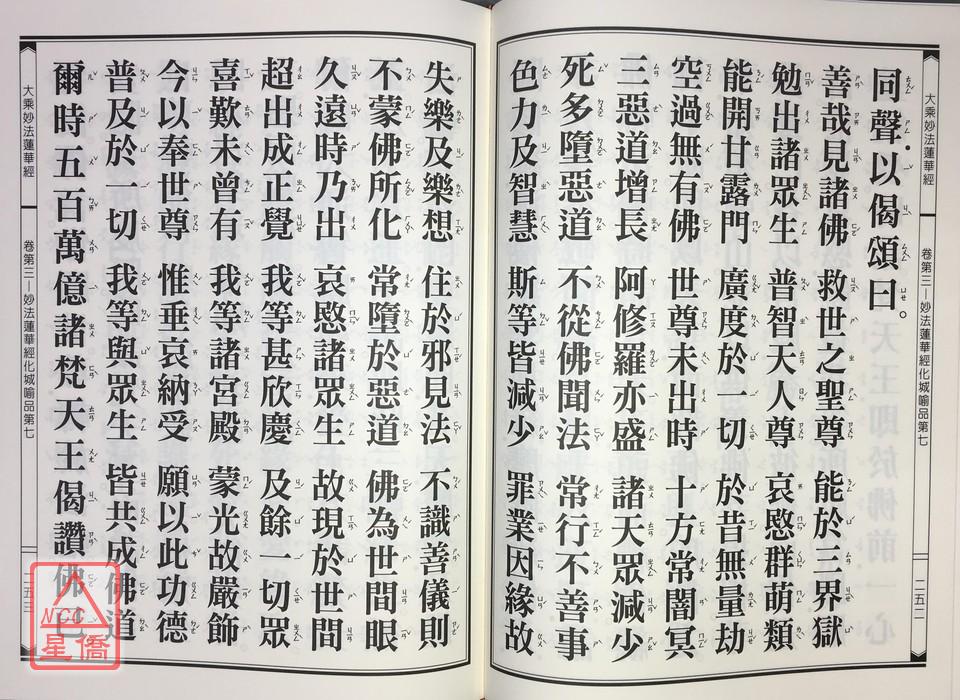 大乘妙法蓮華經
卷第三—妙法蓮華經化城喻品第七
二五二
同聲。以偈頌曰。
善哉見諸佛 救世之聖尊 能於三界獄
勉出諸眾生 普智天人尊 哀愍群萌類
能開甘露門 廣度於一切 於昔無量劫
空過無有佛 世尊未出時 十方常闇冥
三惡道增長 阿修羅亦盛 諸天眾減少
死多墮惡道 不從佛聞法 常行不善事
色力及智慧 斯等皆減少 罪業因緣故
失樂及樂想 住於邪見法 不識善儀則
不蒙佛所化 常墮於惡道 佛為世間眼
久遠時乃出 哀愍諸眾生 故現於世間
超出成正覺 我等甚欣慶 及餘一切眾
喜歎未曾有 我等諸宮殿 蒙光故嚴飾
今以奉世尊 惟垂哀納受 願以此功德
普及於一切 我等與眾生 皆共成佛道
爾時五百萬億諸梵天王偈讚佛已
大乘妙法蓮華經
卷第三—妙法蓮華經化城喻品第七
二五三
NCC
星僑